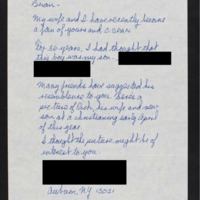 Brian -
My wife and I have recently become
a fan of yours and C-SPAN.
For 30 years, I had thought that
this boy was my son.
Many friends have suggested his
resemblance to you. Here's a
picture of Rich, his wife and new
son at a christening early April
of this year.
I thought the picture might be of
interest to you.
Auburn, NY 13021